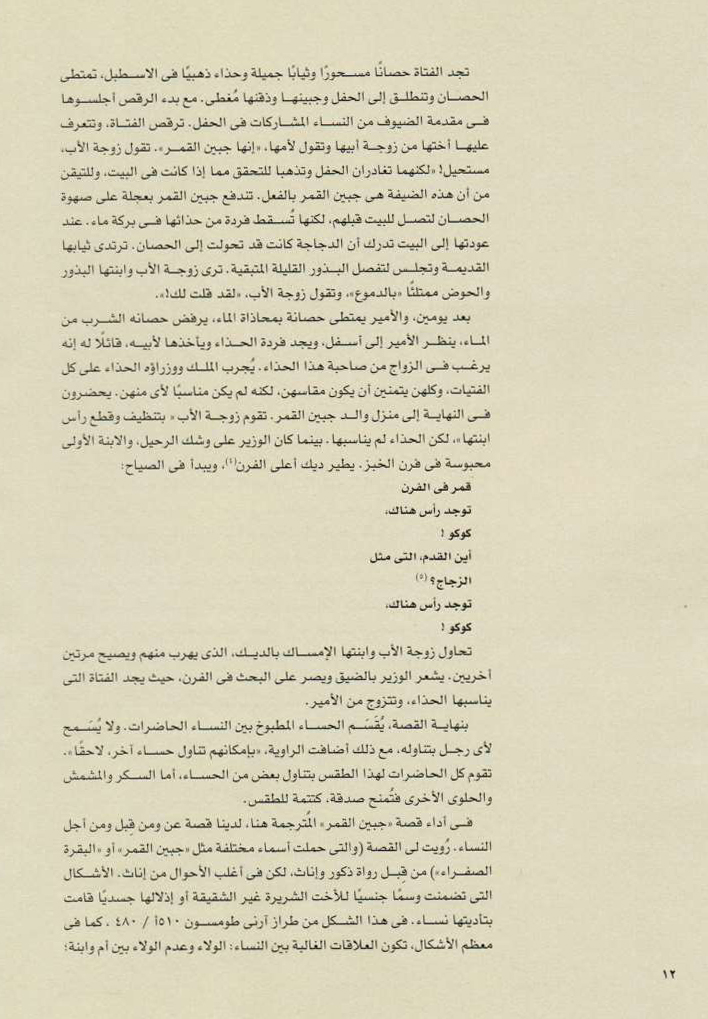 تجد الفتاة حصانًا مسحورًا وثيابًا جميلة وحذاء ذهبيًا فى الاسطبل، تمتطى
الحصان وتنطلق إلى الحفل وجبينها وذقنها مُغطى. مع بدء الرقص أجلسوها
فى مقدمة الضيوف من النساء المشاركات فى الحفل. ترقص الفتاة، وتتعرف
عليها أختها من زوجة أبيها وتقول لأمها، «إنها جبين القمر». تقول زوجة الأب،
مستحيل! «لكنهما تغادران الحفل وتذهبا للتحقق مما إذا كانت فى البيت، ولليتقن
من أن هذه الضيفة هى جبين القمر بالفعل. تندفع جبين القمر بعجلة على صهوة
الحصان لتصل للبيت قبلهم، لكنها تُسقط فردة من حذائها فى بركة ماء. عند
عودتها إلى البيت تدرك أن الدجاجة كانت قد تحولت إلى الحصان. ترتدى ثيابها
القديمة وتجلس لتفصل البذور القليلة المتبقية. ترى زوجة الأب وابنتها البذور
والحوض ممتلئًا «بالدموع»، وتقول زوجة الأب، «لقد قلت لك!».
بعد يومين، والأمير يمتطى حصانة بمحاذاة الماء، يرفض حصانه الشرب من
الماء، ينظر الأمير إلى أسفل، ويجد فردة الحذاء ويأخذها لأبيه، قائلًا له إنه
يرغب فى الزواج من صاحبة هذا الحذاء. يُجرب الملك ووزراؤه الحذاء على كل
الفتيات، وكلهن يتمنين أن يكون مقاسهن، لكنه لم يكن مناسبًا لأى منهن. يحضرون
فى النهاية إلى منزل والد جبين القمر. تقوم زوجة الأب « بتنظيف وقطع رأس
ابنتها»، لكن الحذاء لم يناسبها. بينما كان الوزير على وشك الرحيل، والابنة الأولى
محبوسة فى فرن الخبز. يطير ديك أعلى الفرن(٤)، ويبدأ فى الصياح:
قمر فى الفرن
توجد رأس هناك،
كوكو !
أين القدم، التى مثل
الزجاج؟ (٥)
توجد رأس هناك،
كوكو !
تحاول زوجة الأب وابنتها الإمساك بالديك، الذى يهرب منهم ويصيح مرتين
أخريين. يشعر الوزير بالضيق ويصر على البحث فى الفرن، حيث يجد الفتاة التى
يناسبها الحذاء، وتتزوج من الأمير.
بنهاية القصة، يُقَسَم الحساء المطبوخ بين النساء الحاضرات. ولا يُسَمح
لأى رجل بتناوله، مع ذلك أضافت الراوية، «بإمكانهم تناول حساء آخر، لاحقًا».
تقوم كل الحاضرات لهذا الطقس بتناول بعض من الحساء، أما السكر والمشمش
والحلوى الأخرى فتُمنح صدقة، كتتمة للطقس.
فى أداء قصة «جبين القمر» المُترجمة هنا، لدينا قصة عن ومن قِبل ومن أجل
النساء. رُويت لى القصة (والتى حملت أسماء مختلفة مثل «جبين القمر» أو «البقرة
الصفراء») من قبل رواة ذكور وإناث، لكن فى أغلب الأحوال من إناث. الأشكال
التى تضمنت وسمًا جنسيًا للأخت الشريرة غير الشقيقة أو إذلالها جسديًا قامت
بتأديتها نساء. فى هذا الشكل من طراز آرنى طومسون ٥١٠أ / ٤٨٠ ، كما فى
معظم الأشكال، تكون العلاقات الغالبة بين النساء: الولاء وعدم الولاء بين أم وابنة؛
١٢